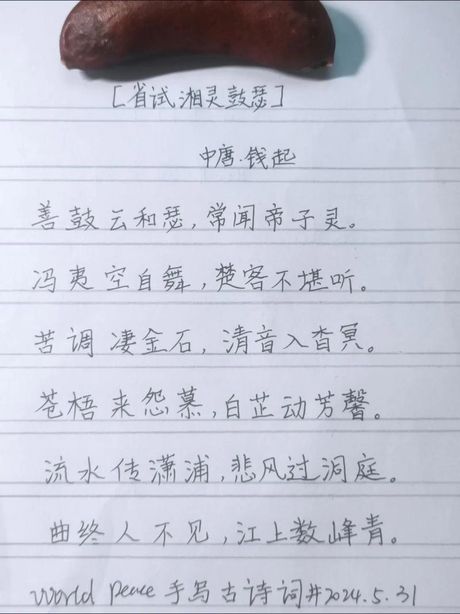 [省试湘灵鼓瑟]
中唐·钱起
善鼓云和瑟,常闻帝子灵。
冯夷空自舞,楚客不堪听。
苦调凄金石,清音入杳冥。
苍梧来怨慕,白芷动芳馨。
流水传潇浦,悲风过洞庭。
曲终人不见,江上数峰青。
World peace手写古诗词#2024.5.31